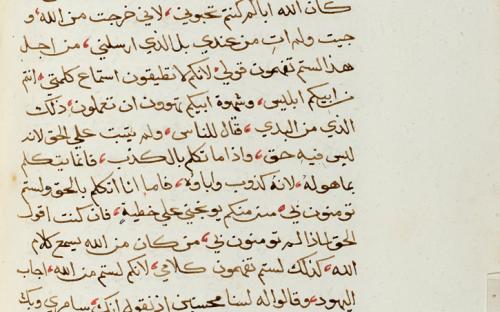 كان الله ابالكم كنتم تحبوني، لاني خرجت من الله، و
جيت ولم ات من عندي بل الذي ارسلني، من اجل
هذا لستم تفهمون قولي، لانكم لا تطيقون استماع كلمتي، انتم
من ابيكم ابليس، وشهوة ابيكم تهوون ان تعملون، ذلك
الذي من البدي، قتال للناس، ولم يثبت علي الحق لانه
ليس فيه حق، واذا ما تكلم بالكذب، فانما يتكلم
بما هو له، لانه كذوب وابا له، فاما انا اتكلم بالحق ولستم
تومنون بي، من منكم يوبخني علي خطية، فان كنت اقول
الحق لماذا لم تومنون بي، من كان من الله يسمع كلام
الله، كذلك لستم تفهمون كلامي، لانكم لستم من الله، اجاب
اليهود، وقالوا له لسنا محسنين اذ نقول انك سامري وبك